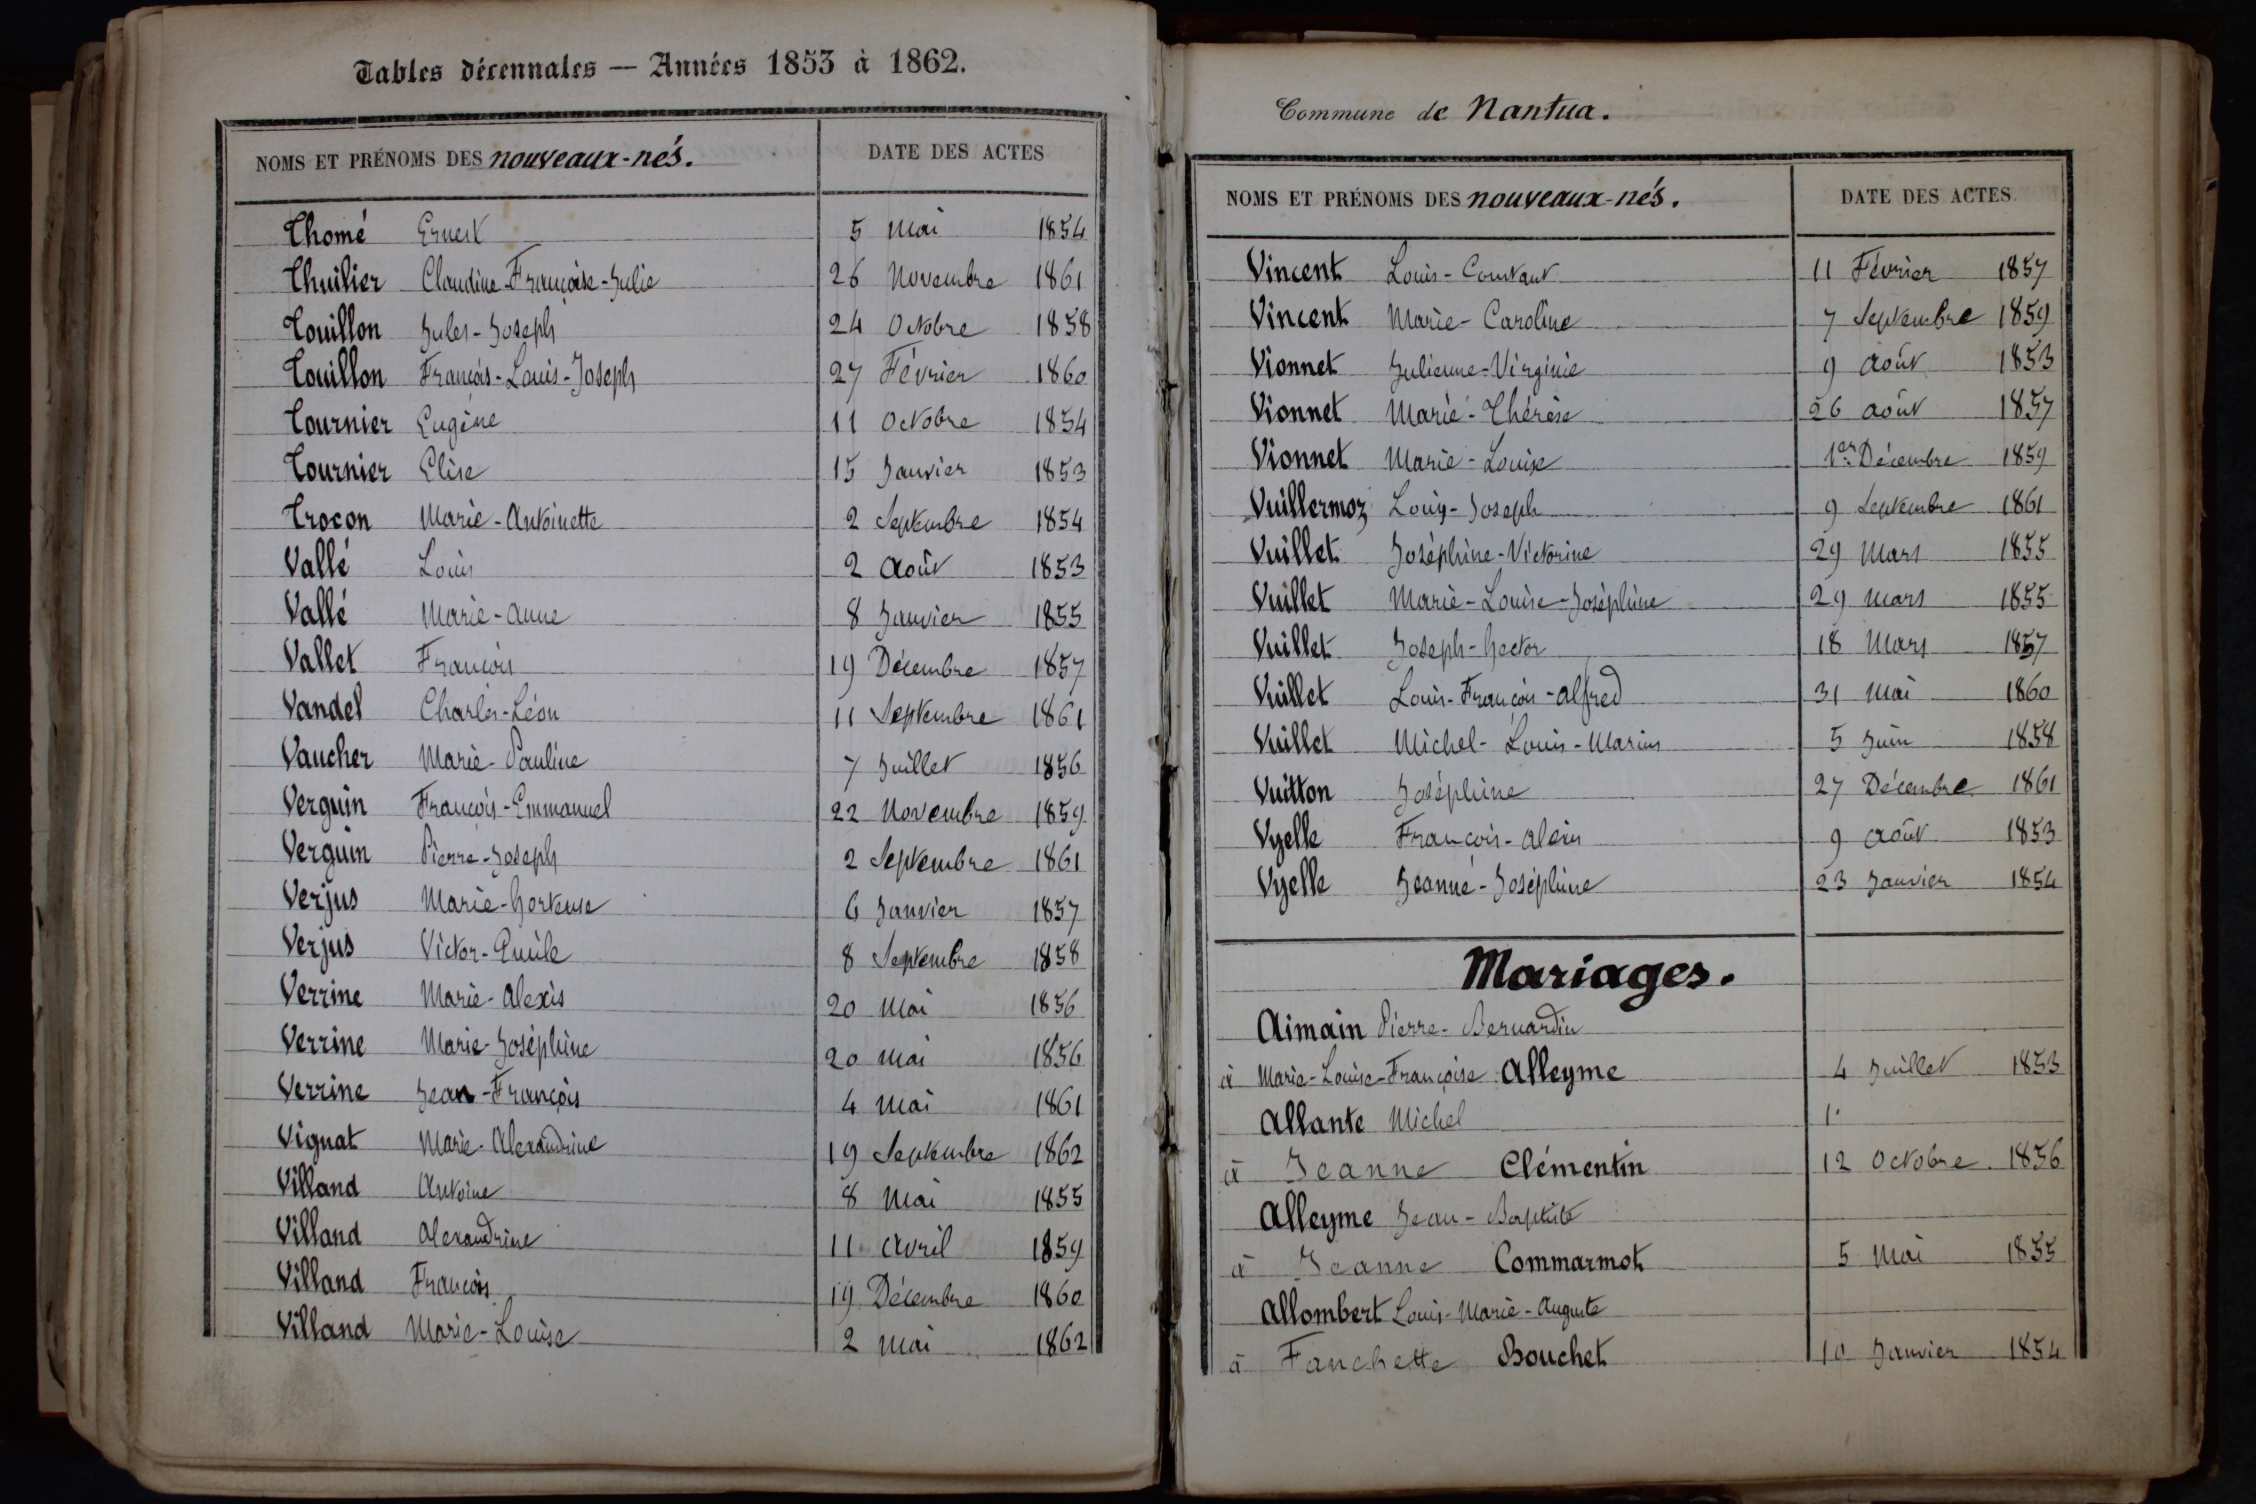 Tables décennales — Années 1853 à 1862.
NOMS ET PRÉNOMS DES nouveaux-nés. DATE DES ACTES
Thomé Ernest 5 Mai 1854
Thuilier Claudine-Françoise-Julie 26 Novembre 1861
Touillon Jules-Joseph 24 Octobre 1858
Touillon François-Louis-Joseph 27 Février 1860
Tournier Eugène 11 Octobre 1854
Tournier Elise 15 Janvier 1853
Trocon Marie-Antoinette 2 Septembre 1854
Vallé Louis 2 Août 1853
Vallé Marie-Anne 8 Janvier 1855
Vallet François 19 Décembre 1857
Vandel Charles-Léon 11 Septembre 1861
Vaucher Marie-Pauline 7 Juillet 1856
Verguin François-Emmanuel 22 Novembre 1859
Verguin Pierre-Joseph 2 Septembre 1861
Verjus Marie-Hortense 6 Janvier 1857
Verjus Victor-Emile 8 Septembre 1858
Verrine Marie-Alexis 20 Mai 1856
Verrine Marie-Joséphine 20 Mai 1856
Verrine Jean-François 4 Mai 1861
Vignat Marie-Alexandrine 19 Septembre 1862
Villand Antoine 8 Mai 1855
Villand Alexandrine 11 Avril 1859
Villand François 19 Décembre 1860
Villand Marie-Louise 2 Mai 1862
Commune de Nantua.
NOMS ET PRÉNOMS DES nouveaux-nés. DATE DES ACTES
Vincent Louis-Constant 11 Février 1857
Vincent Marie-Caroline 7 Septembre 1859
Vionnet Julienne-Virginie 9 Août 1853
Vionnet Marie-Thérèse 26 Août 1857
Vionnet Marie-Louise 1er Décembre 1859
Vuillermoz Louis-Joseph 9 Septembre 1861
Vuillet Joséphine-Victorine 29 Mars 1855
Vuillet Marie-Louise-Joséphine 29 Mars 1855
Vuillet Joseph-Hector 18 Mars 1857
Vuillet Louis-François-Alfred 31 Mai 1860
Vuillet Michel-Louis-Marius 5 Juin 1858
Vuitton Joséphine 27 Décembre 1861
Vyelle François-Alexis 9 Août 1853
Vyelle Jeanne-Joséphine 23 Janvier 1854
Mariages.
Aimain Pierre-Bernardin
à Marie-Louise-Françoise Alleyme 4 Juillet 1853
Allante Michel
à Jeanne Clémentin 12 Octobre 1856
Alleyme Jean-Baptiste
à Jeanne Commarmot 5 Mai 1855
Allombert Louis-Marie-Auguste
à Fanchette Bouchet 10 Janvier 1854